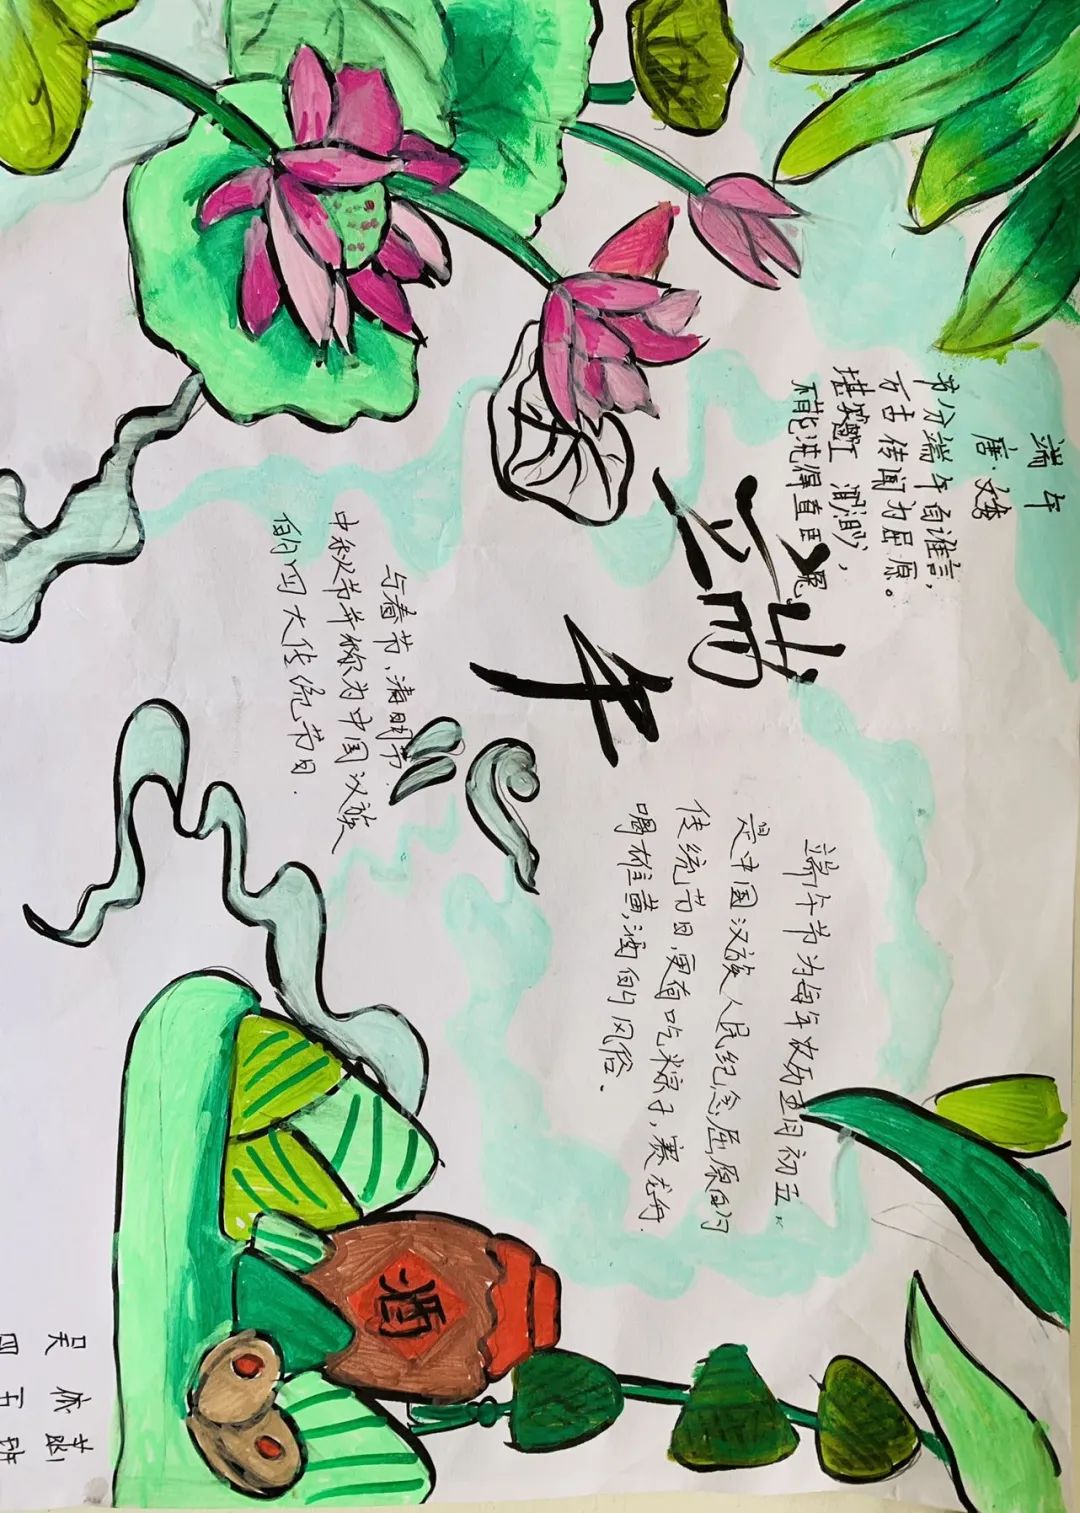 端午
唐·文秀
节分端午自谁言,
万古传闻为屈原。
堪笑楚江 渺渺,
不能洗得直臣冤
端午
端午节为每年农历五月初五,
是中国汉族人民纪念屈原的
传统节日,更有吃粽子,赛龙舟,
喝雄黄酒的风俗.
与春节、清明节、
中秋节并称为中国汉族
的四大传统节日.
酒
吴
四五班